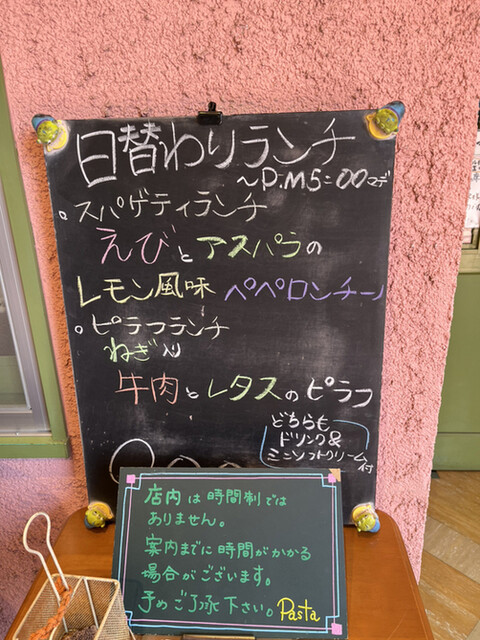 日替わりランチ
～P.M5:00マデ
。スパゲティランチ
えびとアスパラの
レモン風味 ペペロンチーノ
。ピラフランチ
ねぎ入り
牛肉とレタスのピラフ
どちらも
ドリンク&
ミニソフトクリーム付
店内は時間制では
ありません。
案内までに時間がかかる
場合がございます。
予めご了承下さい。Pasta